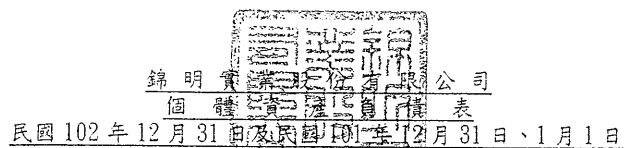 錦明實業股份有限公司
個體資產負債表
民國102年12月31日及民國101年12月31日、1月1日